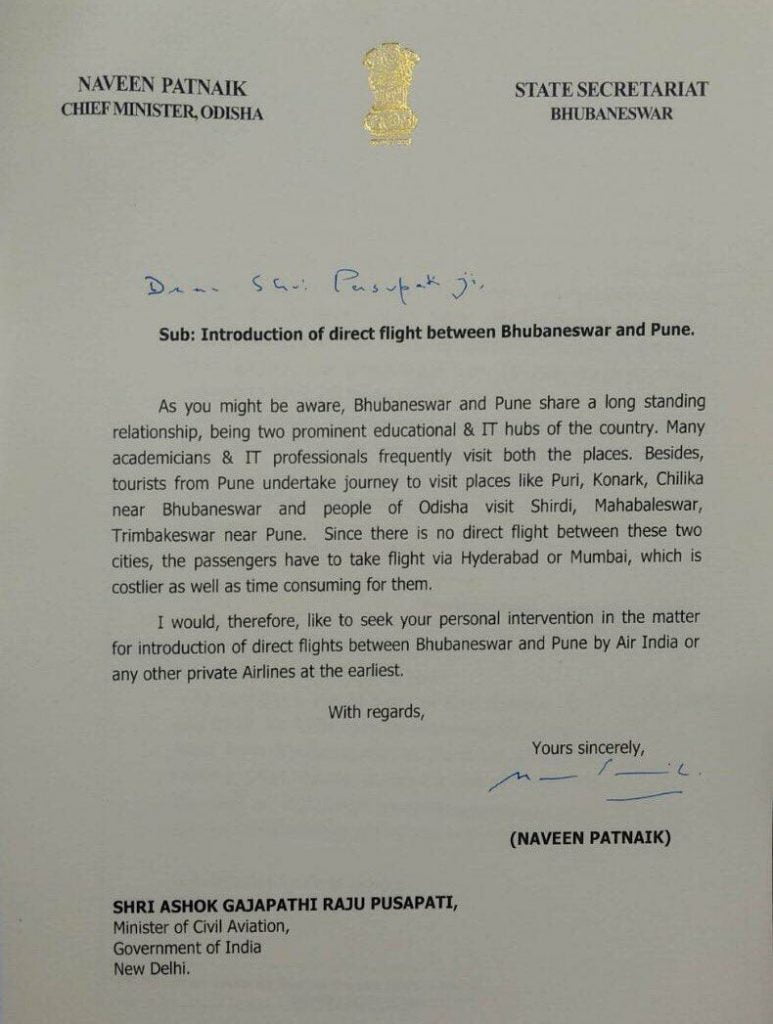 NAVEEN PATNAIK
CHIEF MINISTER, ODISHA
STATE SECRETARIAT
BHUBANESWAR
Dear Shri Pusupati ji,
Sub: Introduction of direct flight between Bhubaneswar and Pune.
As you might be aware, Bhubaneswar and Pune share a long standing
relationship, being two prominent educational & IT hubs of the country. Many
academicians & IT professionals frequently visit both the places. Besides,
tourists from Pune undertake journey to visit places like Puri, Konark, Chilika
near Bhubaneswar and people of Odisha visit Shirdi, Mahabaleswar,
Trimbakeswar near Pune. Since there is no direct flight between these two
cities, the passengers have to take flight via Hyderabad or Mumbai, which is
costlier as well as time consuming for them.
I would, therefore, like to seek your personal intervention in the matter
for introduction of direct flights between Bhubaneswar and Pune by Air India or
any other private Airlines at the earliest.
With regards,
Yours sincerely,
(NAVEEN PATNAIK)
SHRI ASHOK GAJAPATHI RAJU PUSAPATI,
Minister of Civil Aviation,
Government of India
New Delhi.